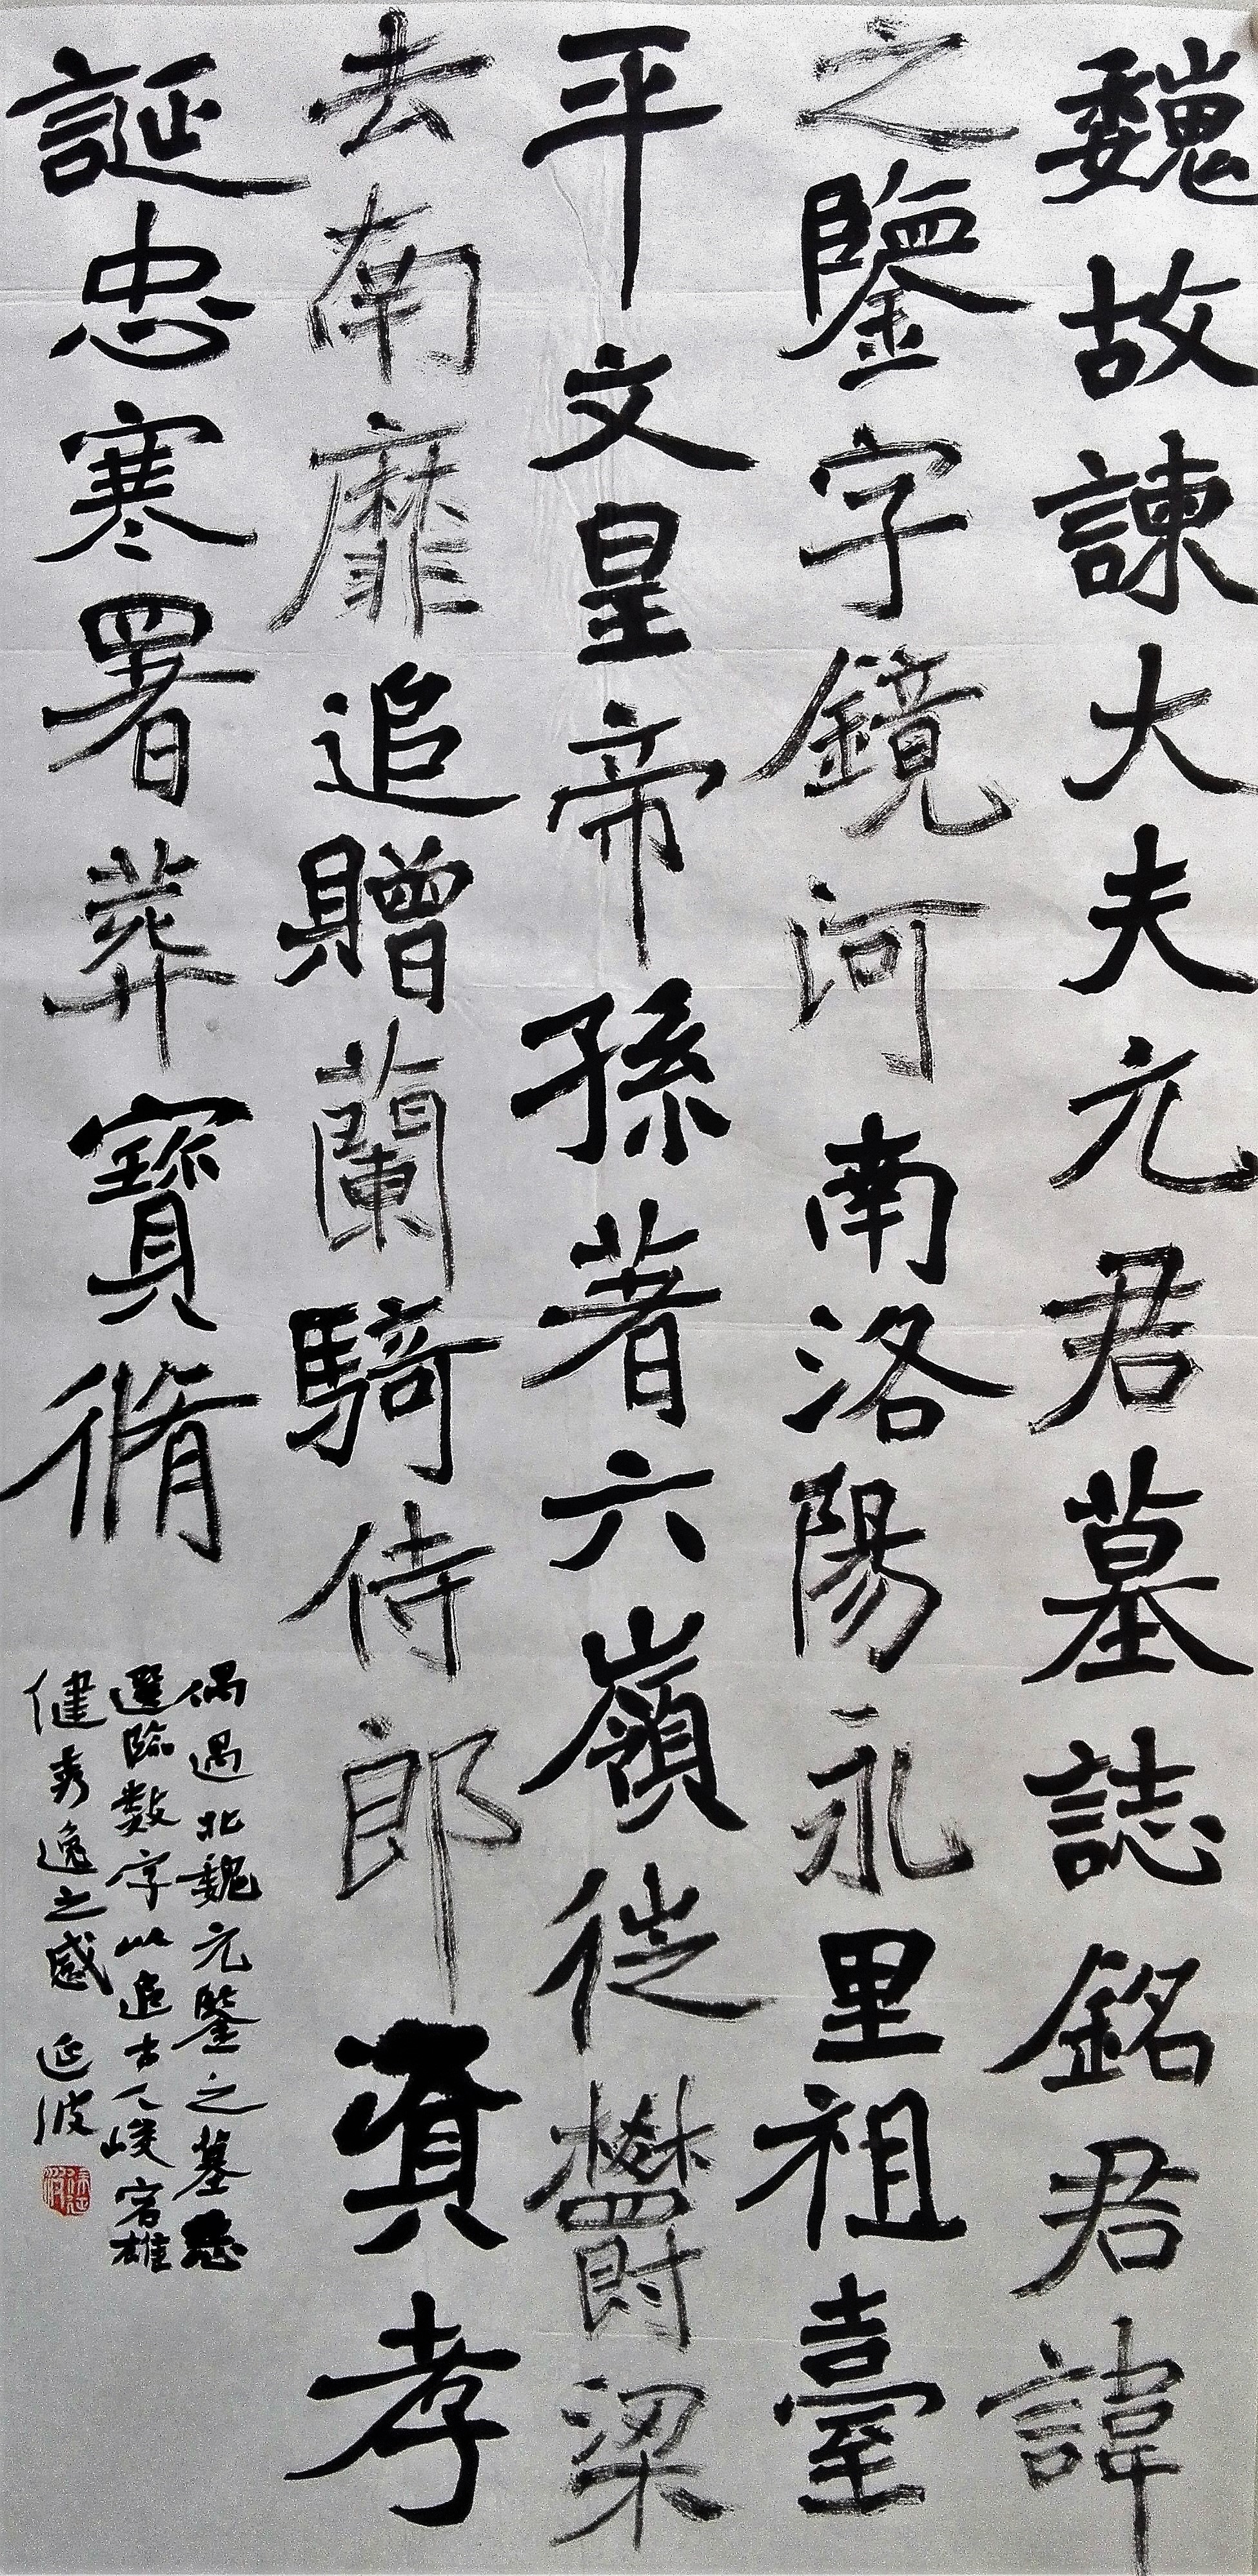 魏故諫大夫元君墓誌銘君諱
之鑒字鏡河南洛陽永里祖臺
平文皇帝孫著六嶺徙鬱梁
去南靡追贈蘭騎侍郎資孝
誕忠寒署葬寶脩
偶遇北魏元鑒之墓志
選臨数字以追古人峻宕雄
健秀逸之感 延波